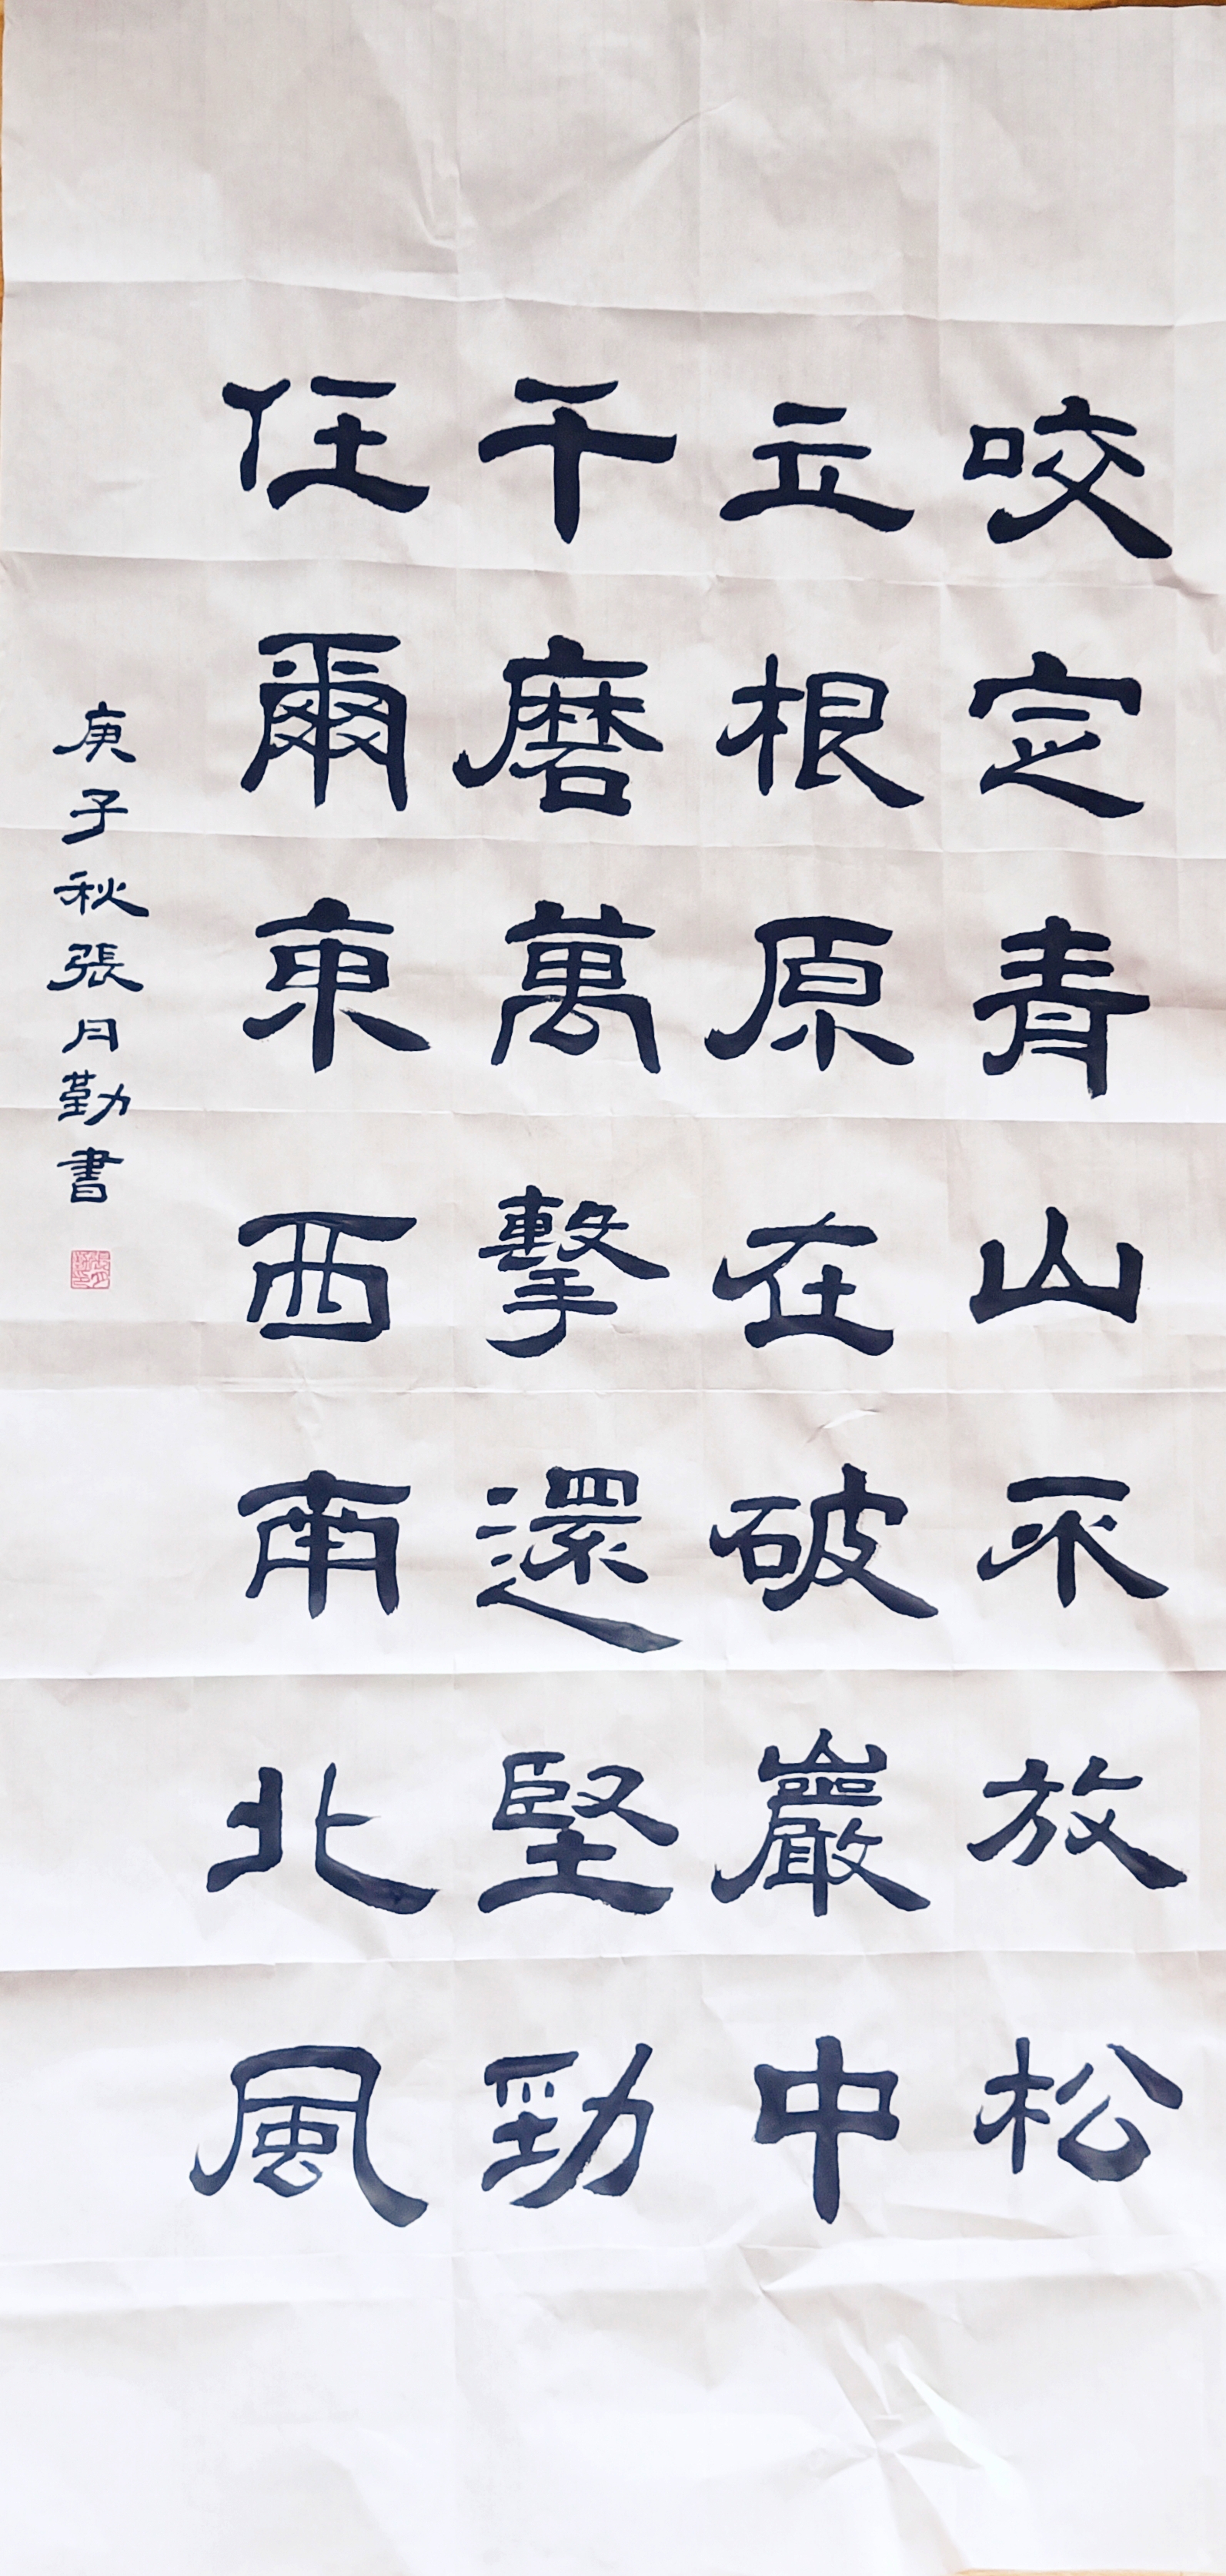 咬定青山不放松
立根原在破巖中
千磨萬擊還堅勁
任爾東西南北風
庚子秋張月勤書